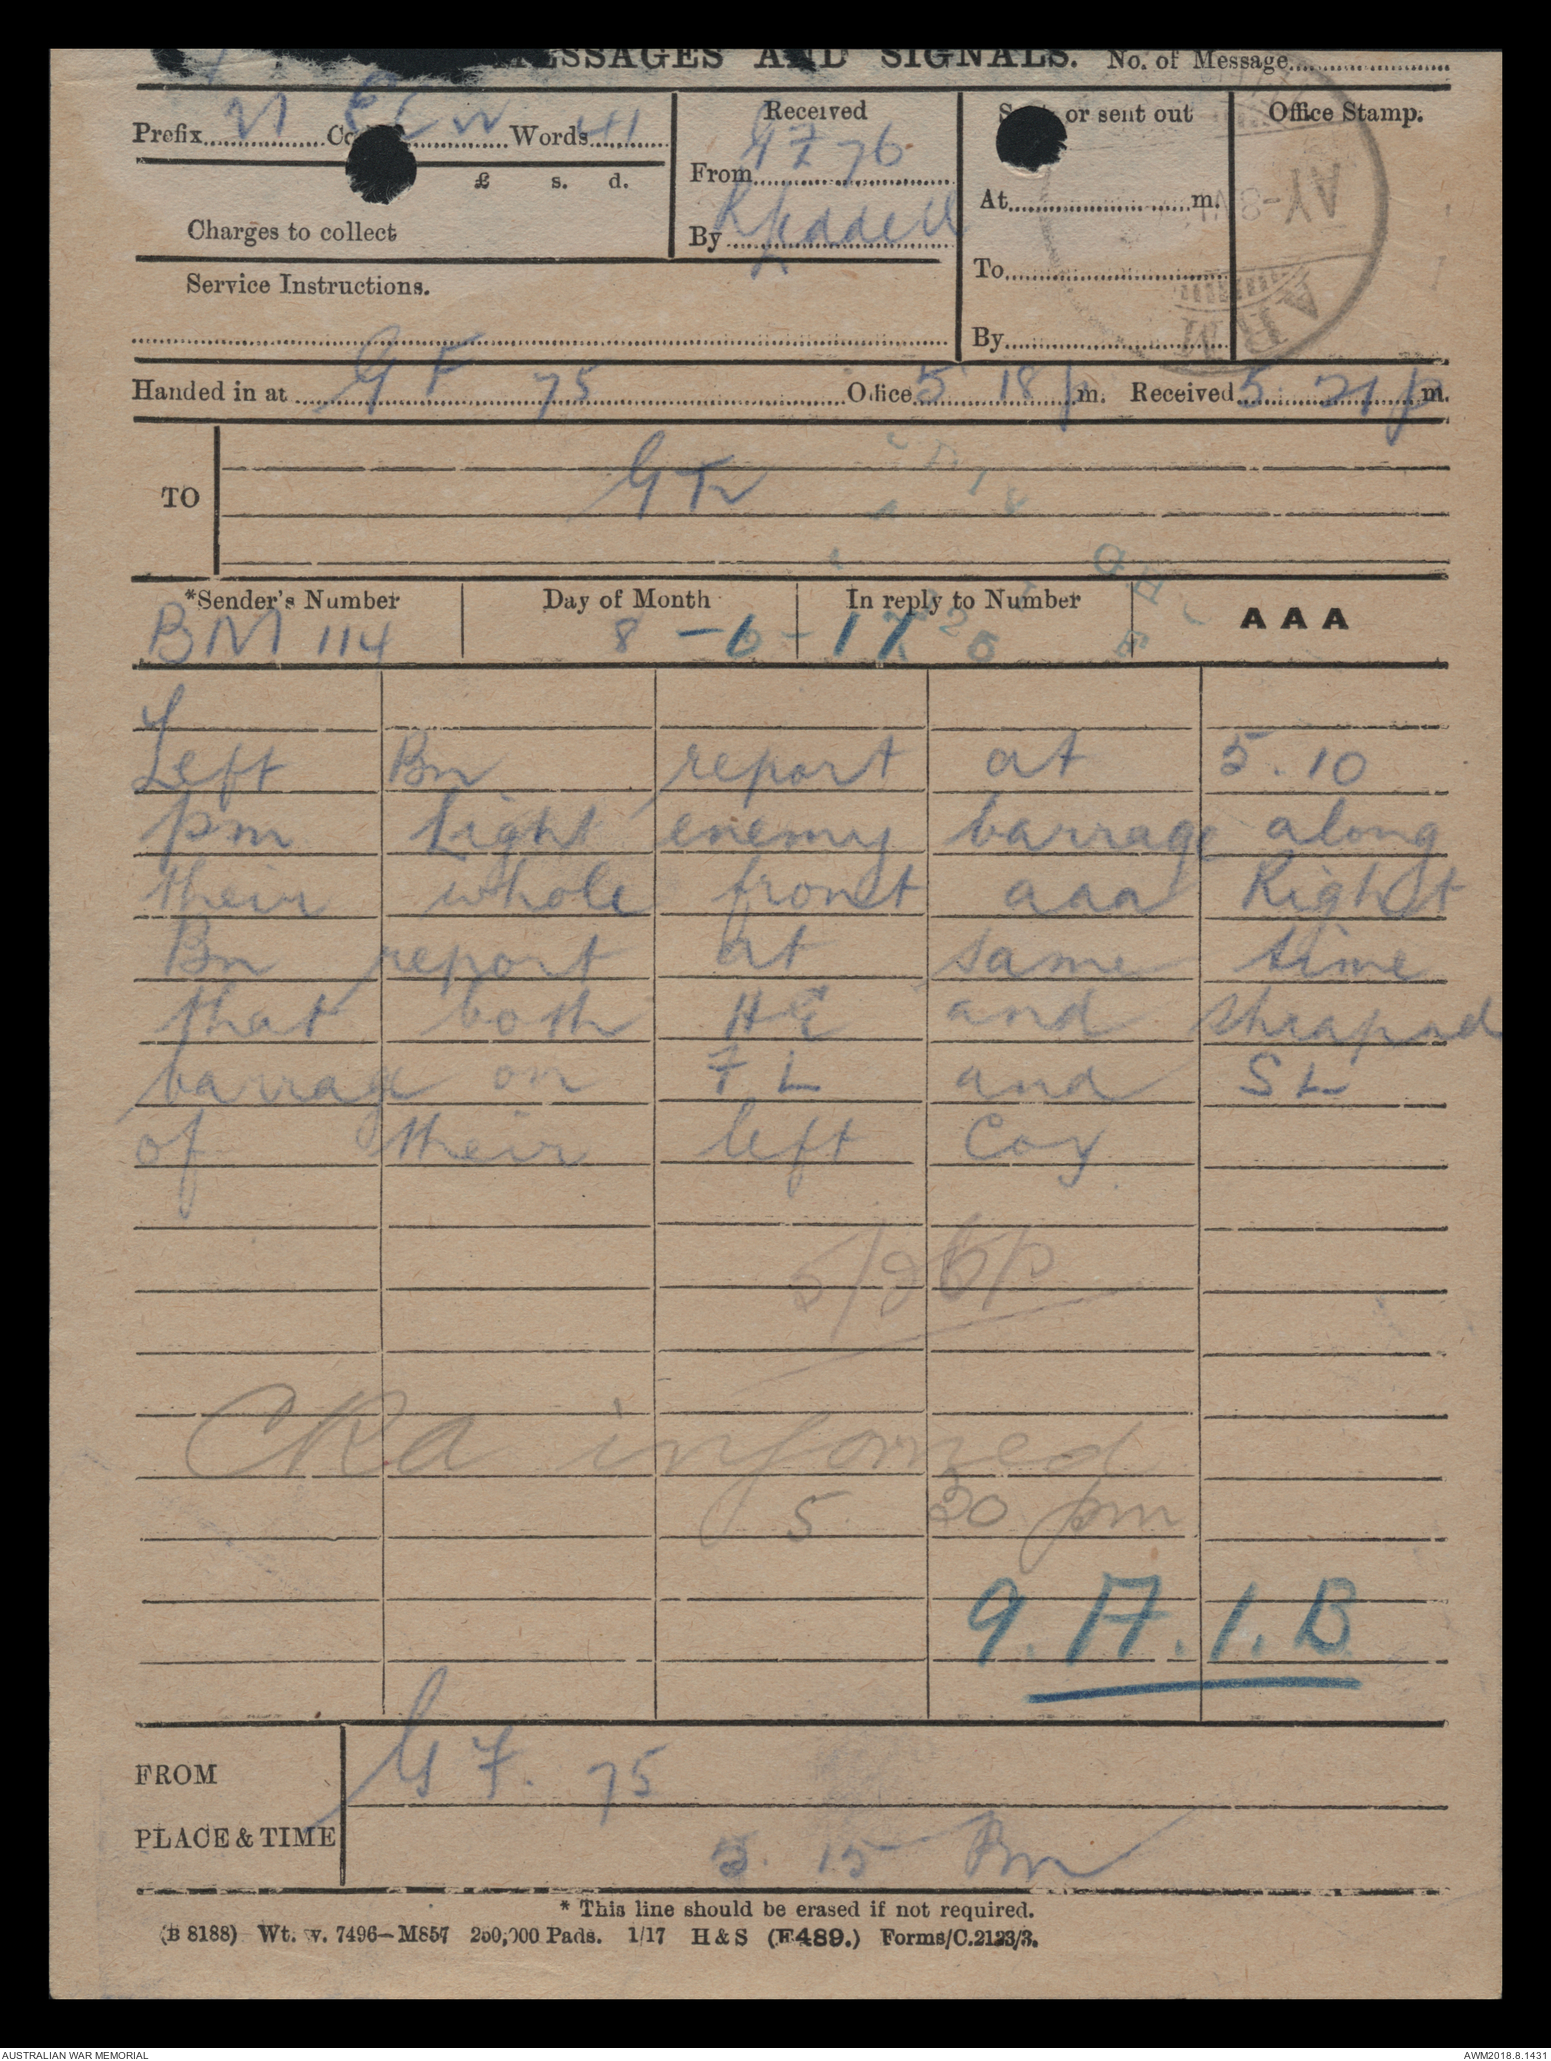 MESSAGES AND SIGNALS. No. of Message
Prefix M Code ECW Words 41
£ s. d.
Charges to collect
Received
From GZ 76
By
Sent or sent out
At m.
To
By
Office Stamp.
Service Instructions.
Handed in at GF 75 Office 5 18 p m. Received 5 21 p m.
TO
*Sender's Number Day of Month In reply to Number AAA
BM 114 8 - 6 - 17
Left Bn report at 5.10
pm Light enemy barrage along
their whole front aaa Right
Bn report at same time
that both HE and shrapnel
barrage on F L and S L
of their left Coy
5/26p
CRA informed
5 30 pm
9.A.1.B
FROM GF. 75
PLACE & TIME 5.15 Pm
* This line should be erased if not required.
(B 8188) Wt. w. 7496—M857 250,000 Pads. 1/17 H & S (E489.) Forms/C.2123/3.
AUSTRALIAN WAR MEMORIAL AWM2018.8.1431